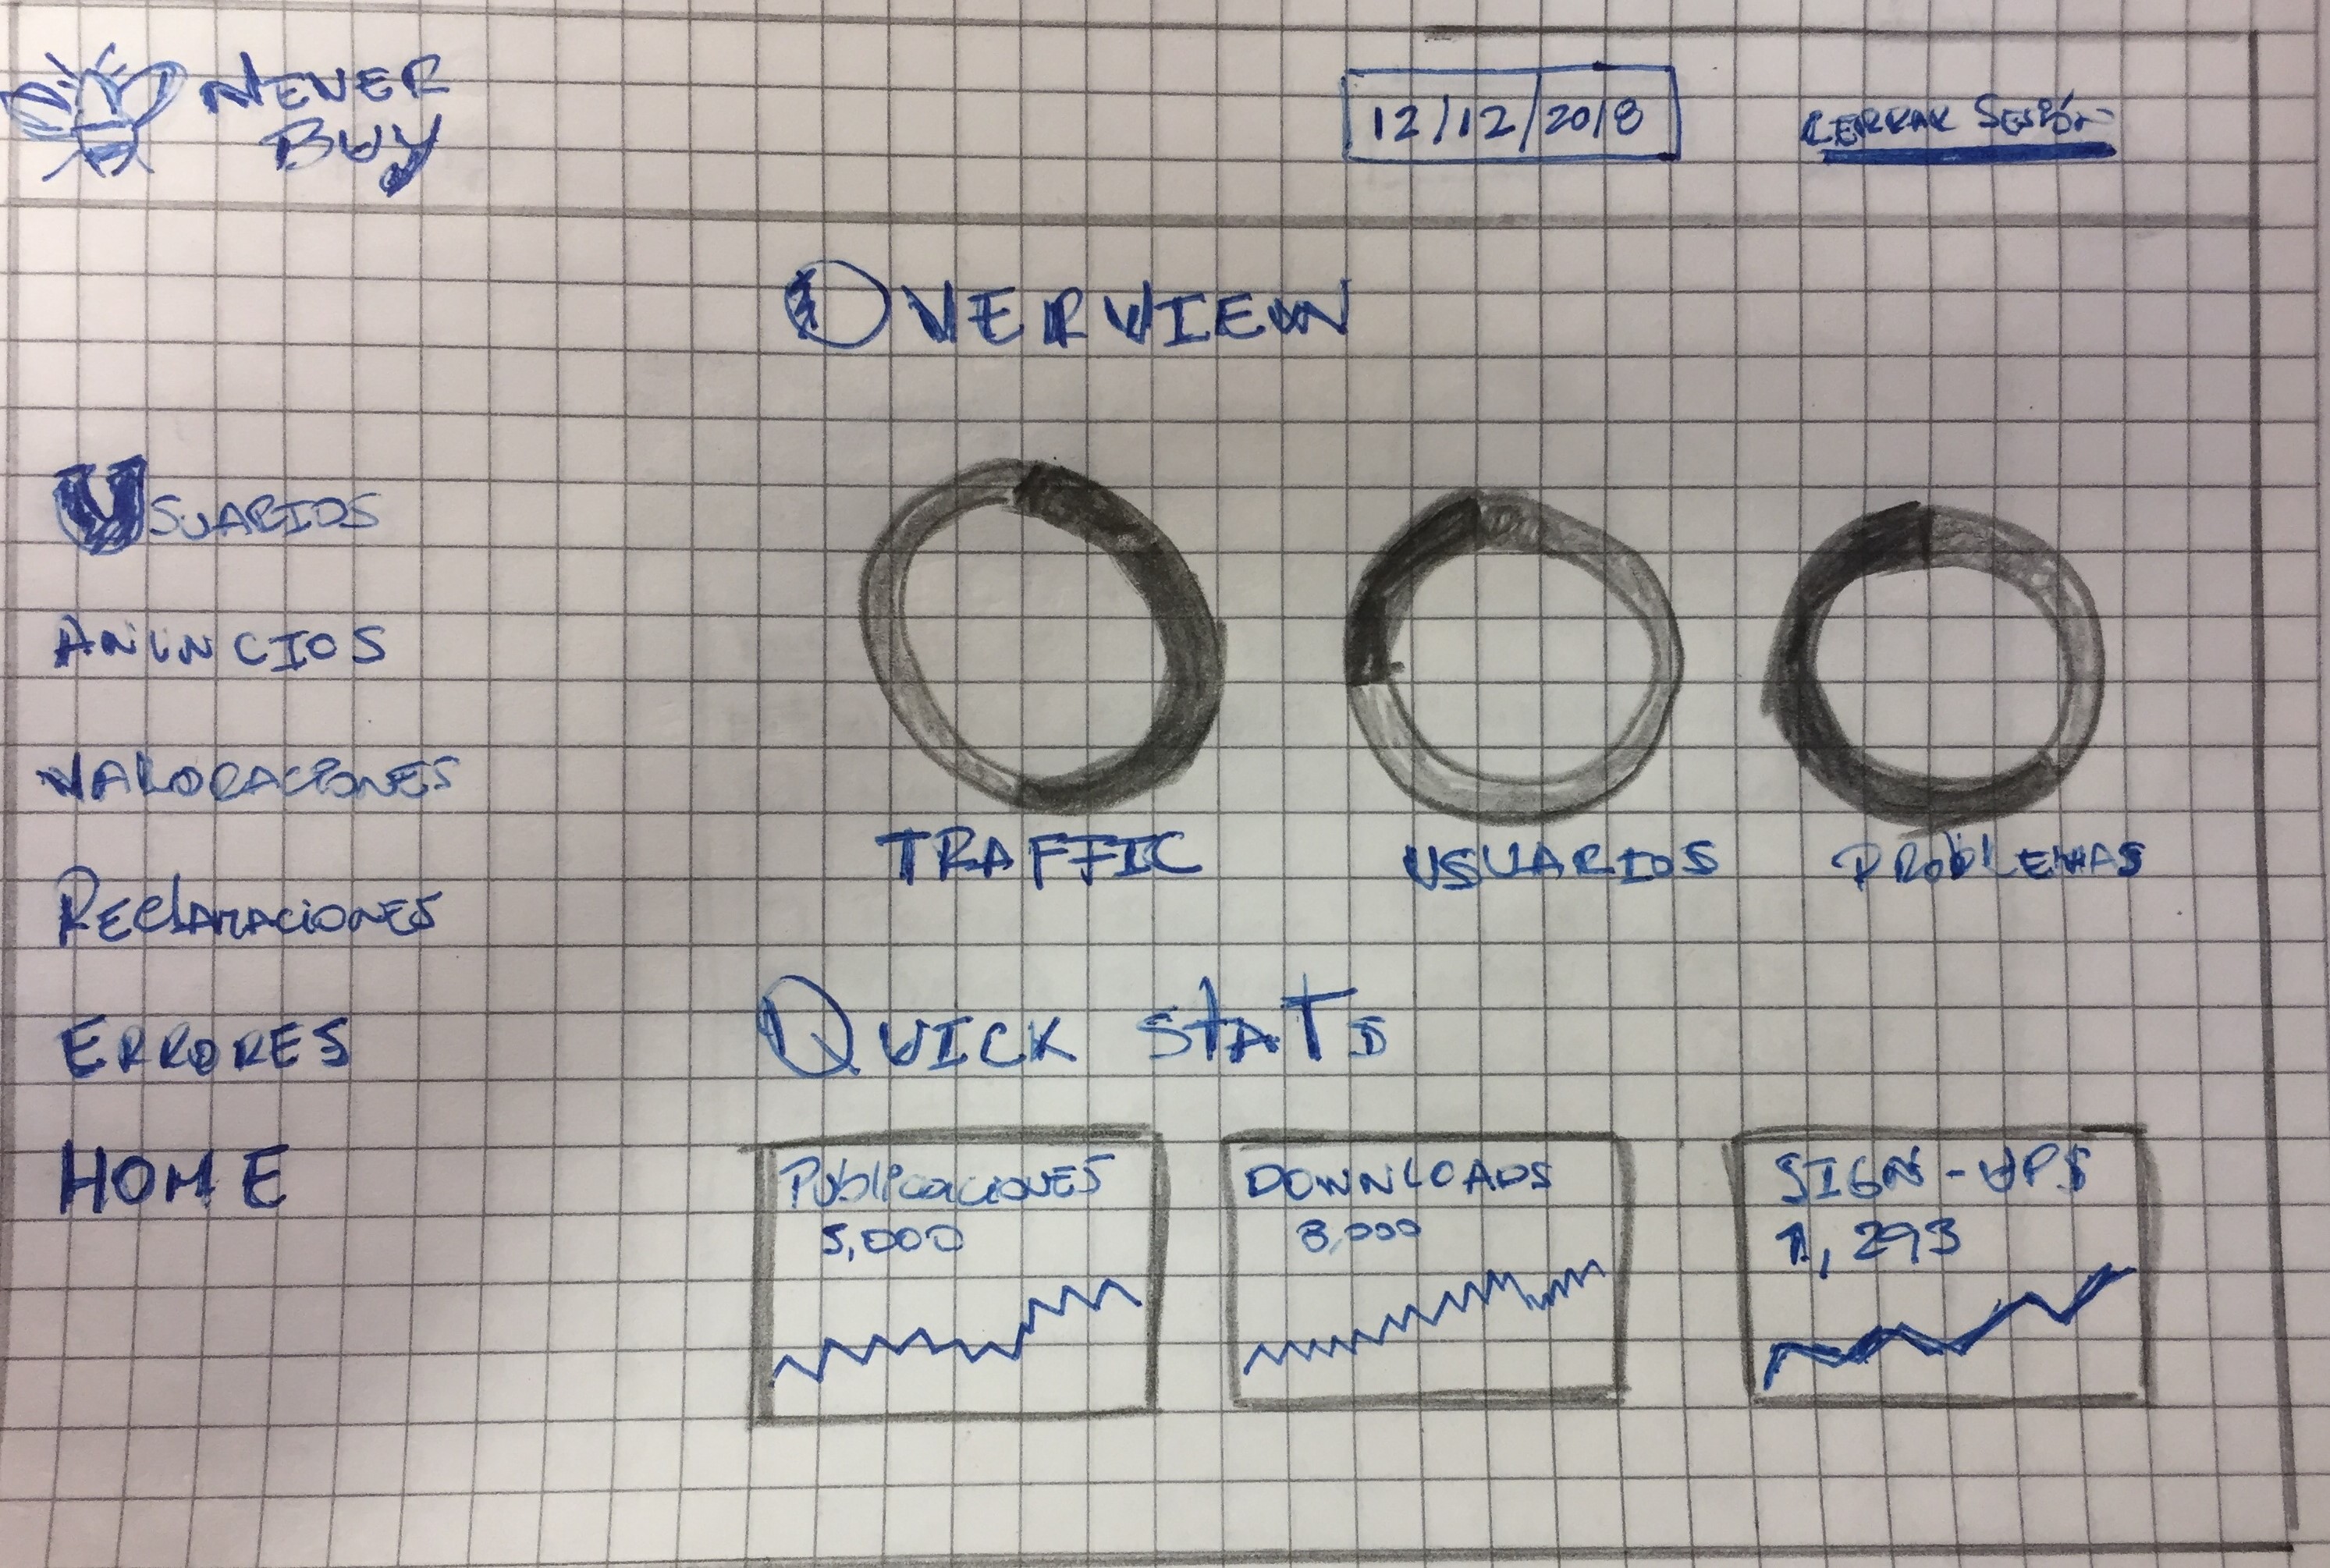 NEVER
BUY
12/12/2018
CERRAR SESIÓN
OVERVIEW
USUARIOS
ANUNCIOS
VALORACIONES
RECLAMACIONES
ERRORES
HOME
TRAFFIC
USUARIOS
PROBLEMAS
QUICK STATS
PUBLICACIONES
5,000
DOWNLOADS
3,000
SIGN-UPS
1,293